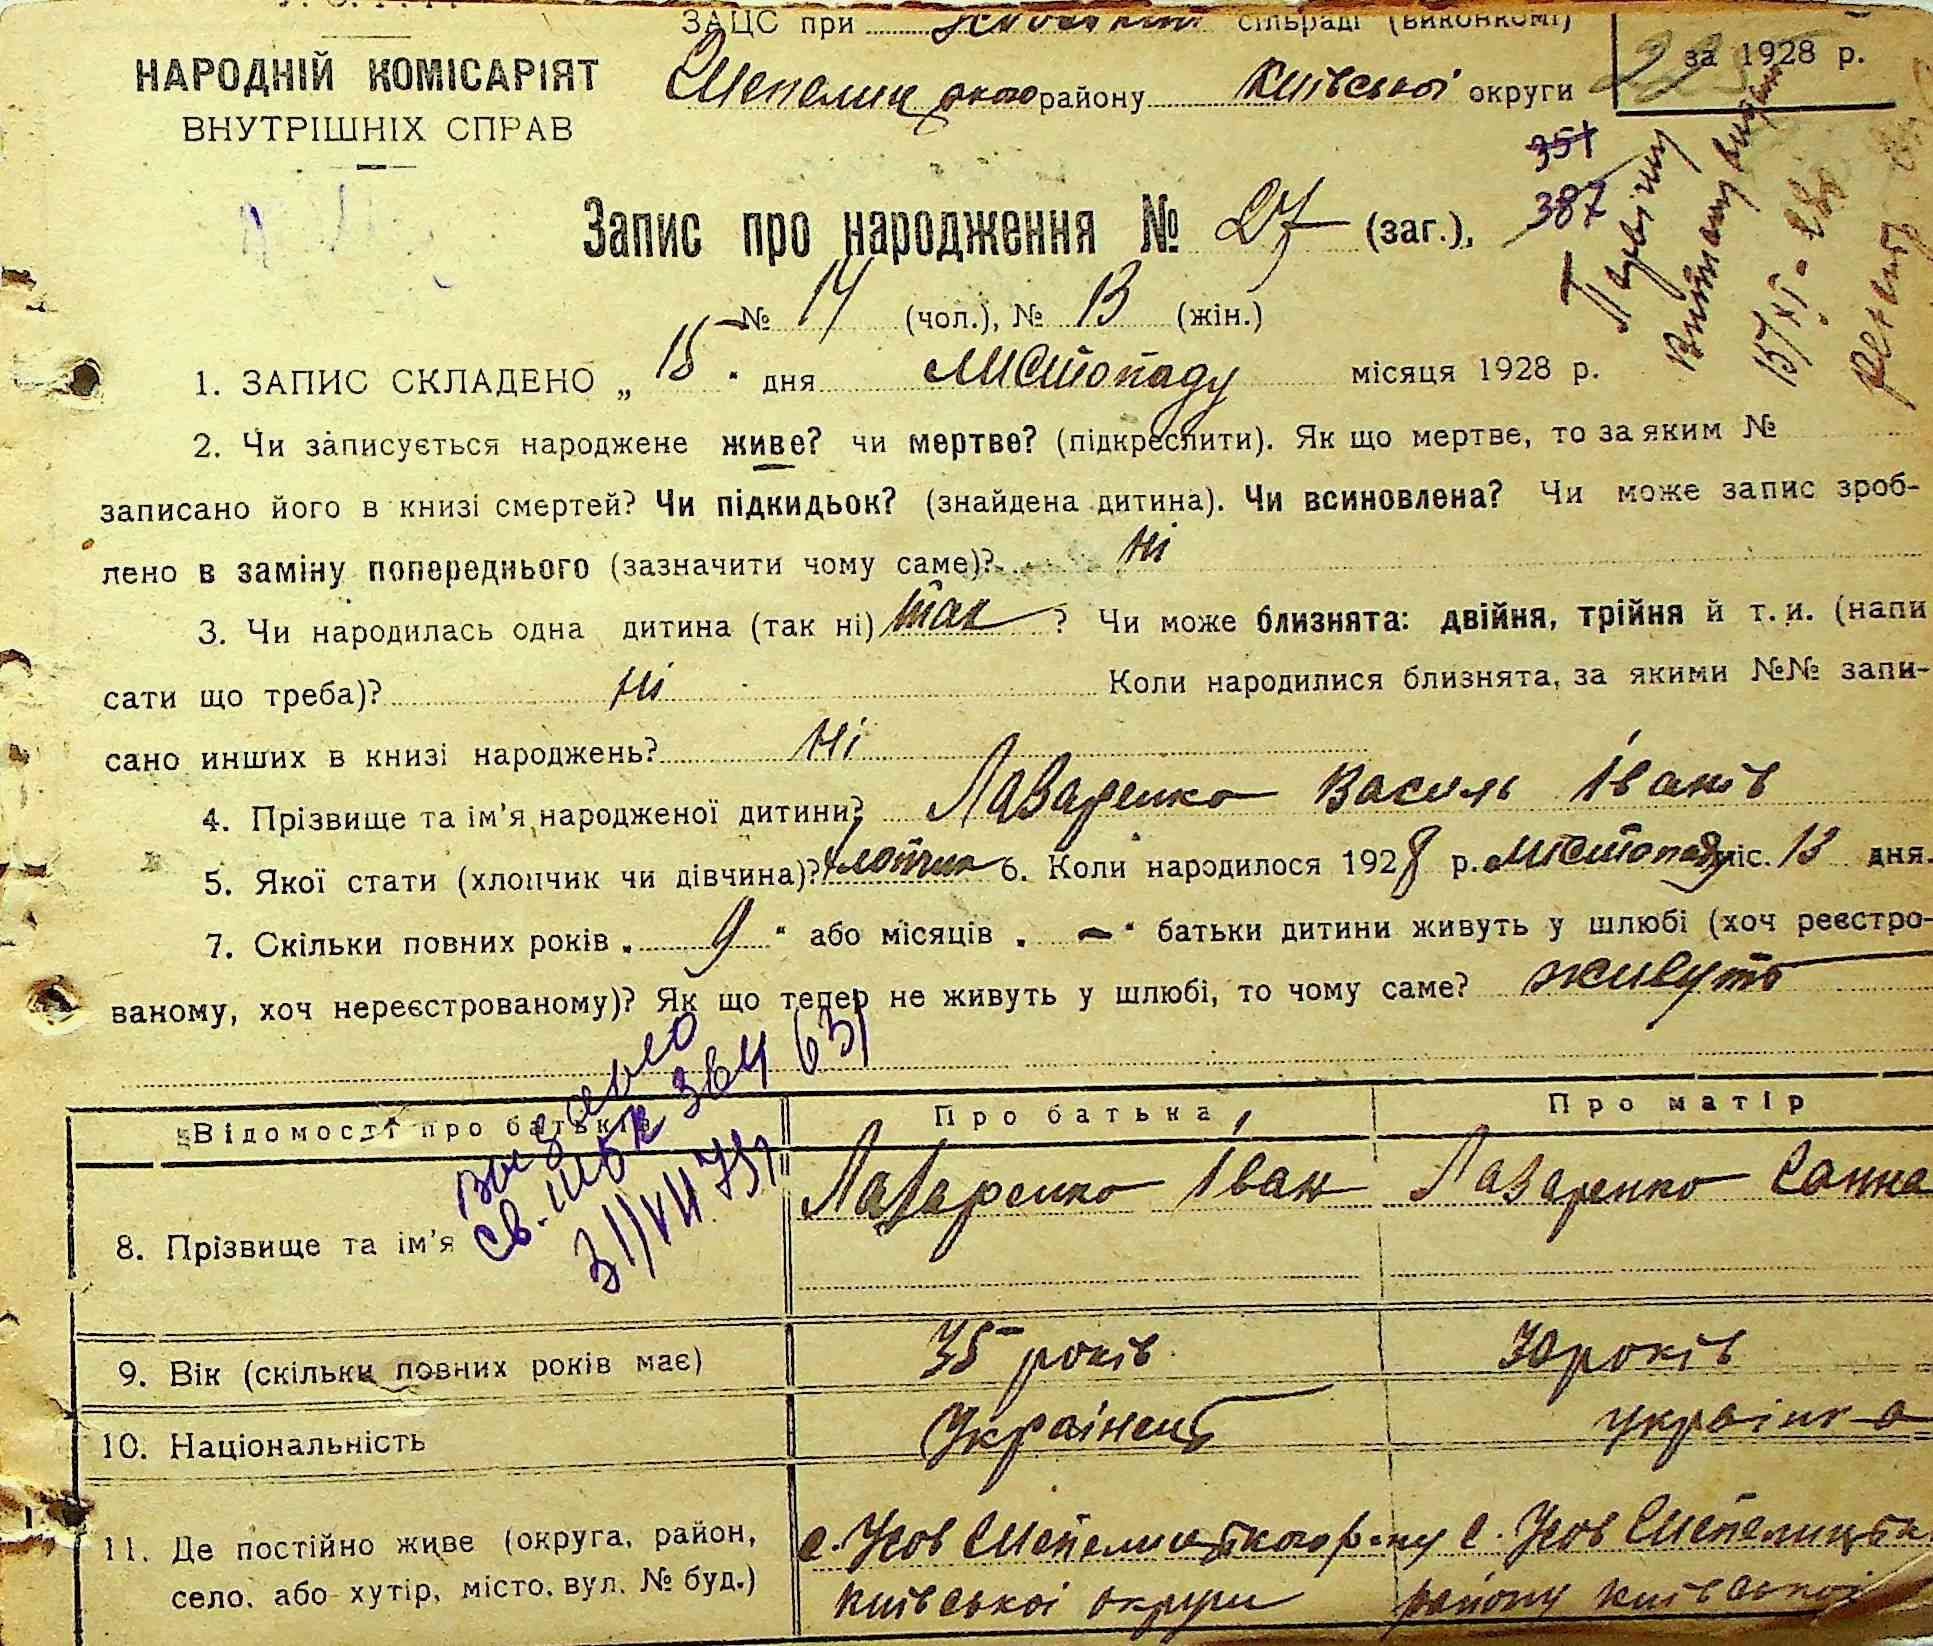 ЗАЦС при сільраді (виконкомі)
за 1928 р.
НАРОДНІЙ КОМІСАРІЯТ
ВНУТРІШНІХ СПРАВ
Шепелицького району Київської округи
351
387
Запис про народження № 27 (заг.),
№ 14 (чол.), № 13 (жін.)
1. ЗАПИС СКЛАДЕНО „ 15 " дня листопаду місяця 1928 р.
2. Чи записується народжене живе? чи мертве? (підкреслити). Як що мертве, то за яким №
записано його в книзі смертей? Чи підкидьок? (знайдена дитина). Чи всиновлена? Чи може запис зроб-
лено в заміну попереднього (зазначити чому саме)? ні
3. Чи народилась одна дитина (так ні) так ? Чи може близнята: двійня, трійня й т. и. (напи
сати що треба)? ні Коли народилися близнята, за якими №№ запи-
сано инших в книзі народжень? ні
4. Прізвище та ім'я народженої дитини? Лазаренко Василь Іванів
5. Якої стати (хлопчик чи дівчина)? хлопчик 6. Коли народилося 1928 р. листопаду міс. 13 дня.
7. Скільки повних років „ 9 " або місяців „ — " батьки дитини живуть у шлюбі (хоч реєстро-
ваному, хоч нереєстрованому)? Як що тепер не живуть у шлюбі, то чому саме? живуть
Відомості про батьків Про батька Про матір
8. Прізвище та ім'я Лазаренко Іван Лазаренко Ганна
9. Вік (скільки повних років має) 35 років 30 років
10. Національність Українець українка
11. Де постійно живе (округа, район, с. Усов Шепелицького р-ну с. Усов Шепелицьк
село, або хутір, місто, вул. № буд.) Київської округи району Київської